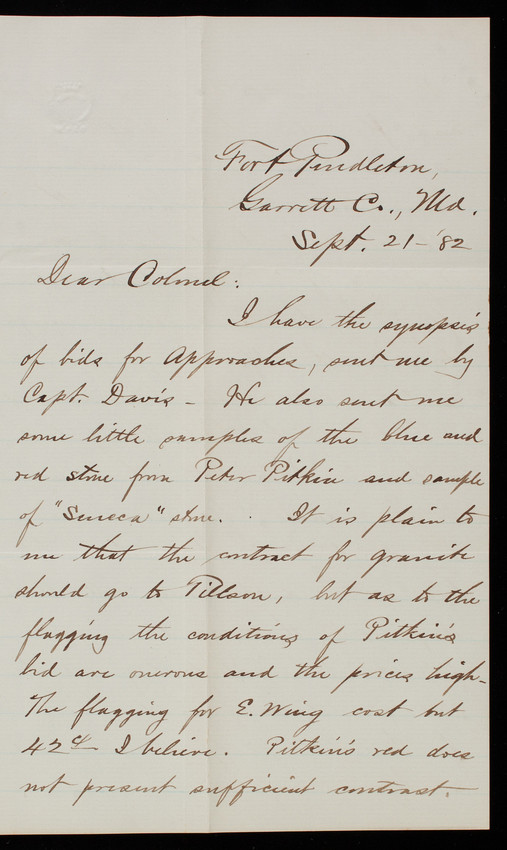 Fort Pendleton,
Garrett Co., Md.
Sept. 21-'82
Dear Colonel:
I have the synopsis
of bids for Approaches, sent me by
Capt. Davis - He also sent me
some little samples of the blue and
red stone from Peter Pitkin and sample
of "Seneca" stone. . It is plain to
me that the contract for granite
should go to Tillson, but as to the
flagging the conditions of Pitkin's
bid are onerous and the prices high-
The flagging for E. Wing cost but
42¢ I believe. Pitkin's red does
not present sufficient contrast.